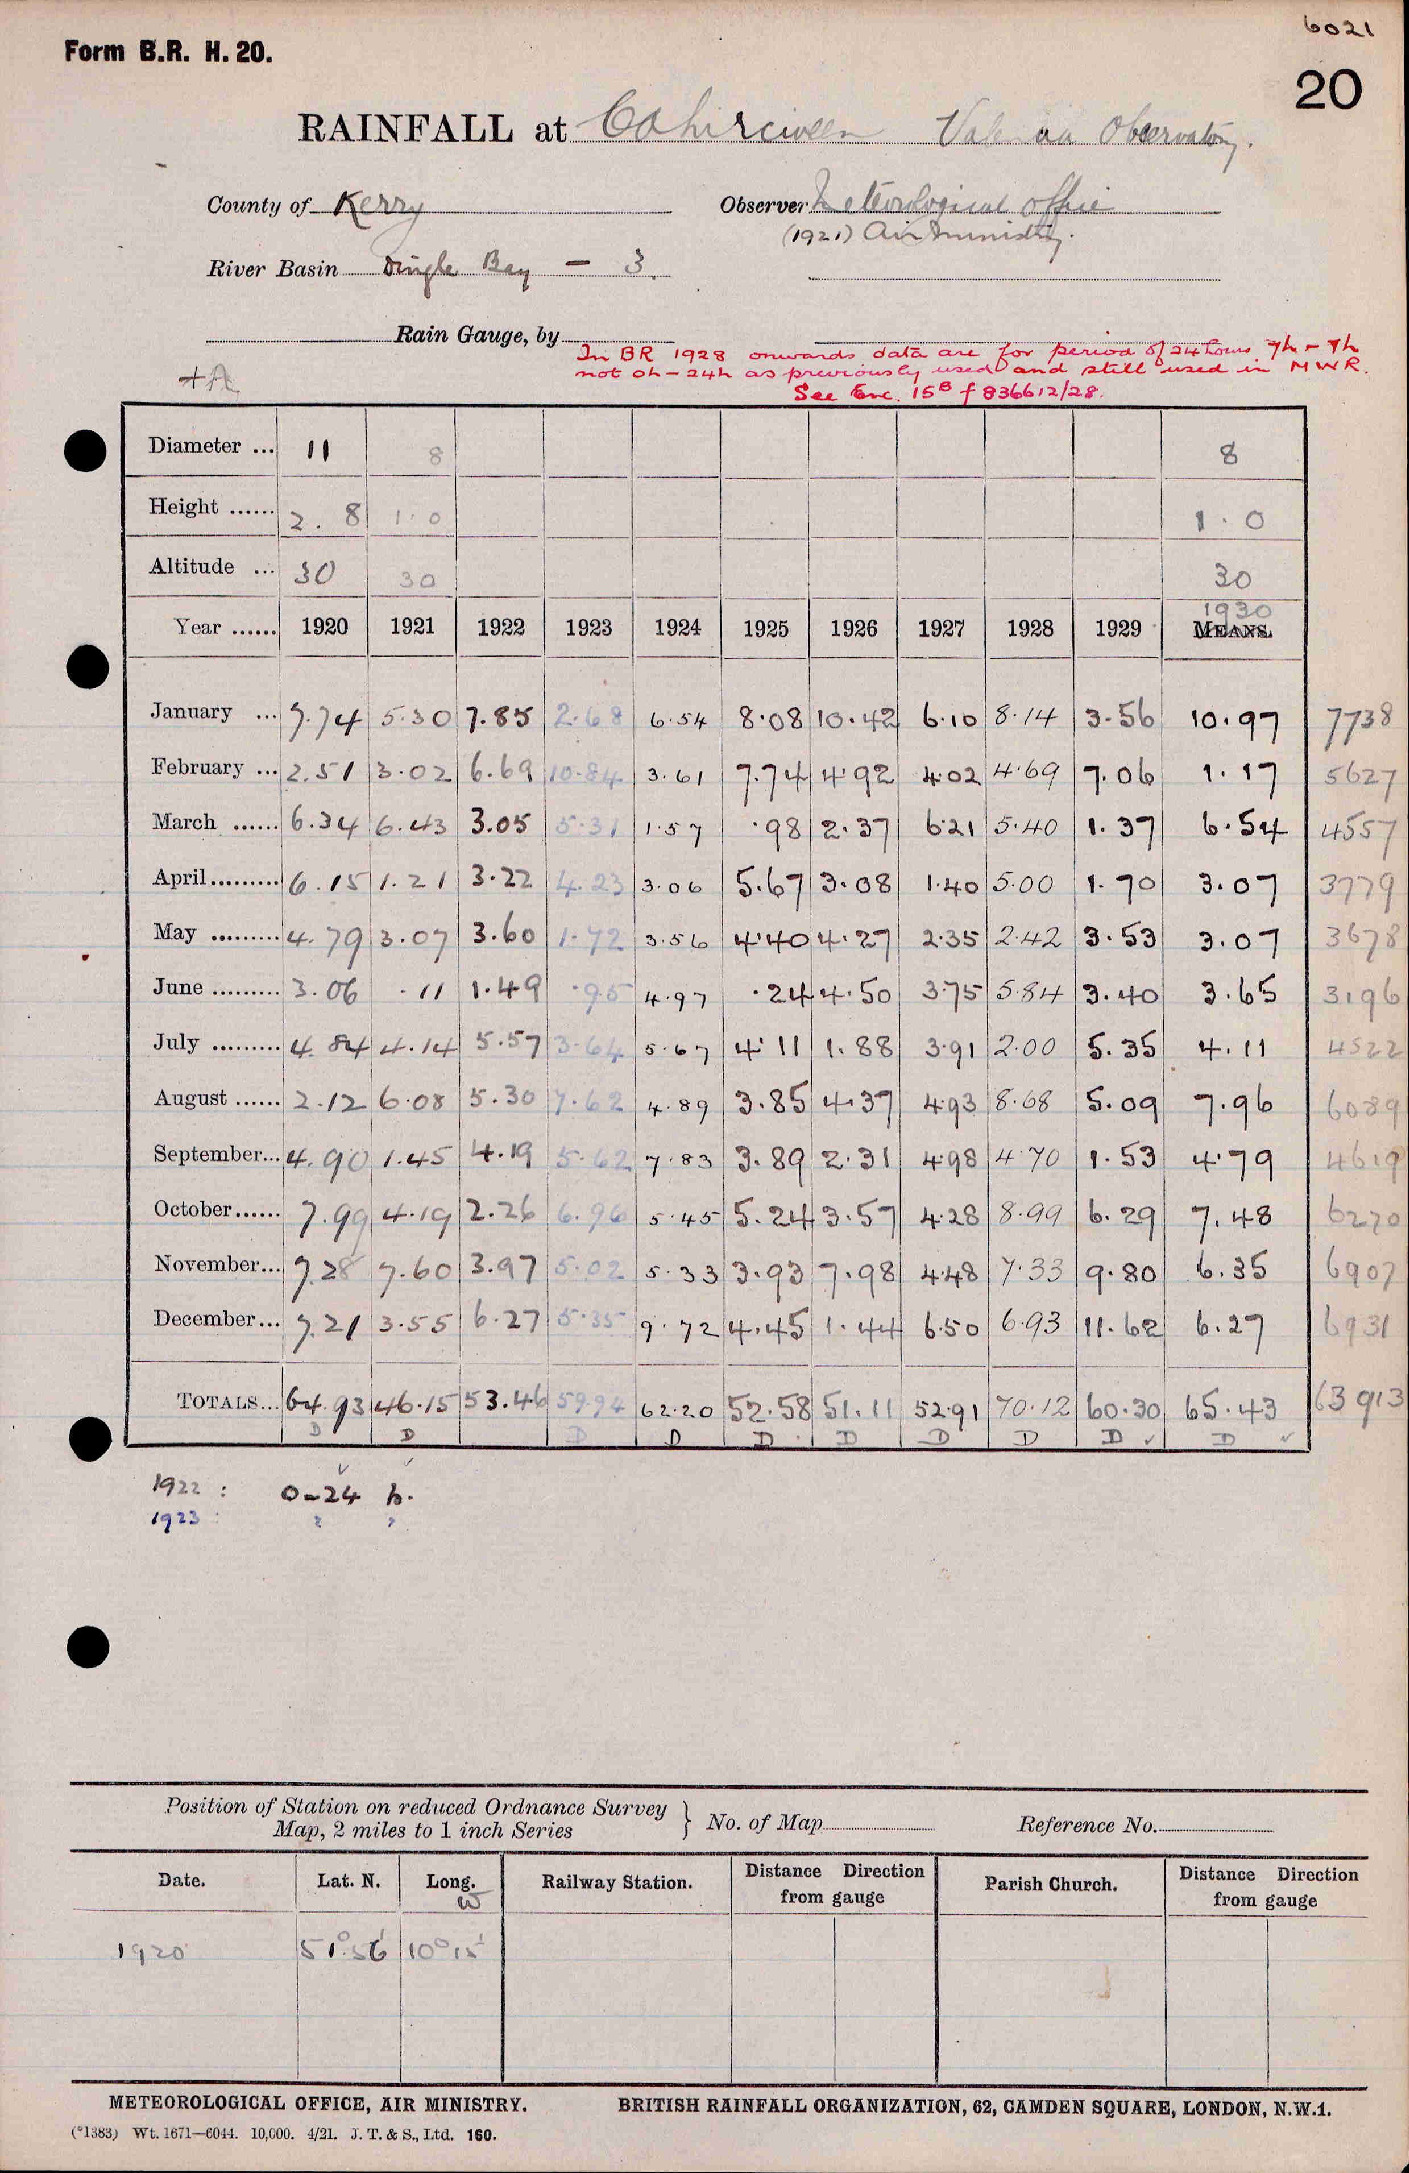 6021
Form B.R. H. 20.
20
RAINFALL at Cahirciveen Valentia Observatory.
County of Kerry Observer Meteorological Office
(1921) Air Ministry.
River Basin Dingle Bay – 3.
Rain Gauge, by
In BR 1928 onwards data are for period of 24 hours 7h – 7h
not 0h – 24h as previously used and still used in MWR.
+A
See Enc. 15B f 836612/28.
Diameter ... 11 8 8
Height ...... 2. 8 1.0 1.0
Altitude ... 30 30 30
1930
Year ...... 1920 1921 1922 1923 1924 1925 1926 1927 1928 1929 MEANS.
January ... 7.74 5.30 7.85 2.68 6.54 8.08 10.42 6.10 8.14 3.56 10.97 7738
February ... 2.51 3.02 6.69 10.84 3.61 7.74 4.92 4.02 4.69 7.06 1.17 5627
March ...... 6.34 6.43 3.05 5.31 1.57 .98 2.37 6.21 5.40 1.37 6.54 4557
April......... 6.15 1.21 3.22 4.23 3.06 5.67 3.08 1.40 5.00 1.70 3.07 3779
May ......... 4.79 3.07 3.60 1.72 3.56 4.40 4.27 2.35 2.42 3.53 3.07 3678
June ......... 3.06 .11 1.49 .95 4.97 .24 4.50 3.75 5.84 3.40 3.65 3196
July ......... 4.84 4.14 5.57 3.64 5.67 4.11 1.88 3.91 2.00 5.35 4.11 4522
August ...... 2.12 6.08 5.30 7.62 4.89 3.85 4.37 4.93 8.68 5.09 7.96 6089
September... 4.90 1.45 4.19 5.62 7.83 3.89 2.31 4.98 4.70 1.53 4.79 4619
October...... 7.99 4.19 2.26 6.96 5.45 5.24 3.57 4.28 8.99 6.29 7.48 6270
November... 7.28 7.60 3.97 5.02 5.33 3.93 7.98 4.48 7.33 9.80 6.35 6907
December... 7.21 3.55 6.27 5.35 9.72 4.45 1.44 6.50 6.93 11.62 6.27 6931
TOTALS... 64.93 46.15 53.46 59.94 62.20 52.58 51.11 52.91 70.12 60.30 65.43 63913
D D D D D D D D D ✓ D ✓
1922 : 0–24 h.
1923 : " "
Position of Station on reduced Ordnance Survey
Map, 2 miles to 1 inch Series } No. of Map Reference No.
Date. Lat. N. Long. W Railway Station. Distance Direction from gauge Parish Church. Distance Direction from gauge
1920 51°.56' 10° 15'
METEOROLOGICAL OFFICE, AIR MINISTRY. BRITISH RAINFALL ORGANIZATION, 62, CAMDEN SQUARE, LONDON, N.W.1.
(*1383) Wt. 1671—6044. 10,000. 4/21. J. T. & S., Ltd. 160.